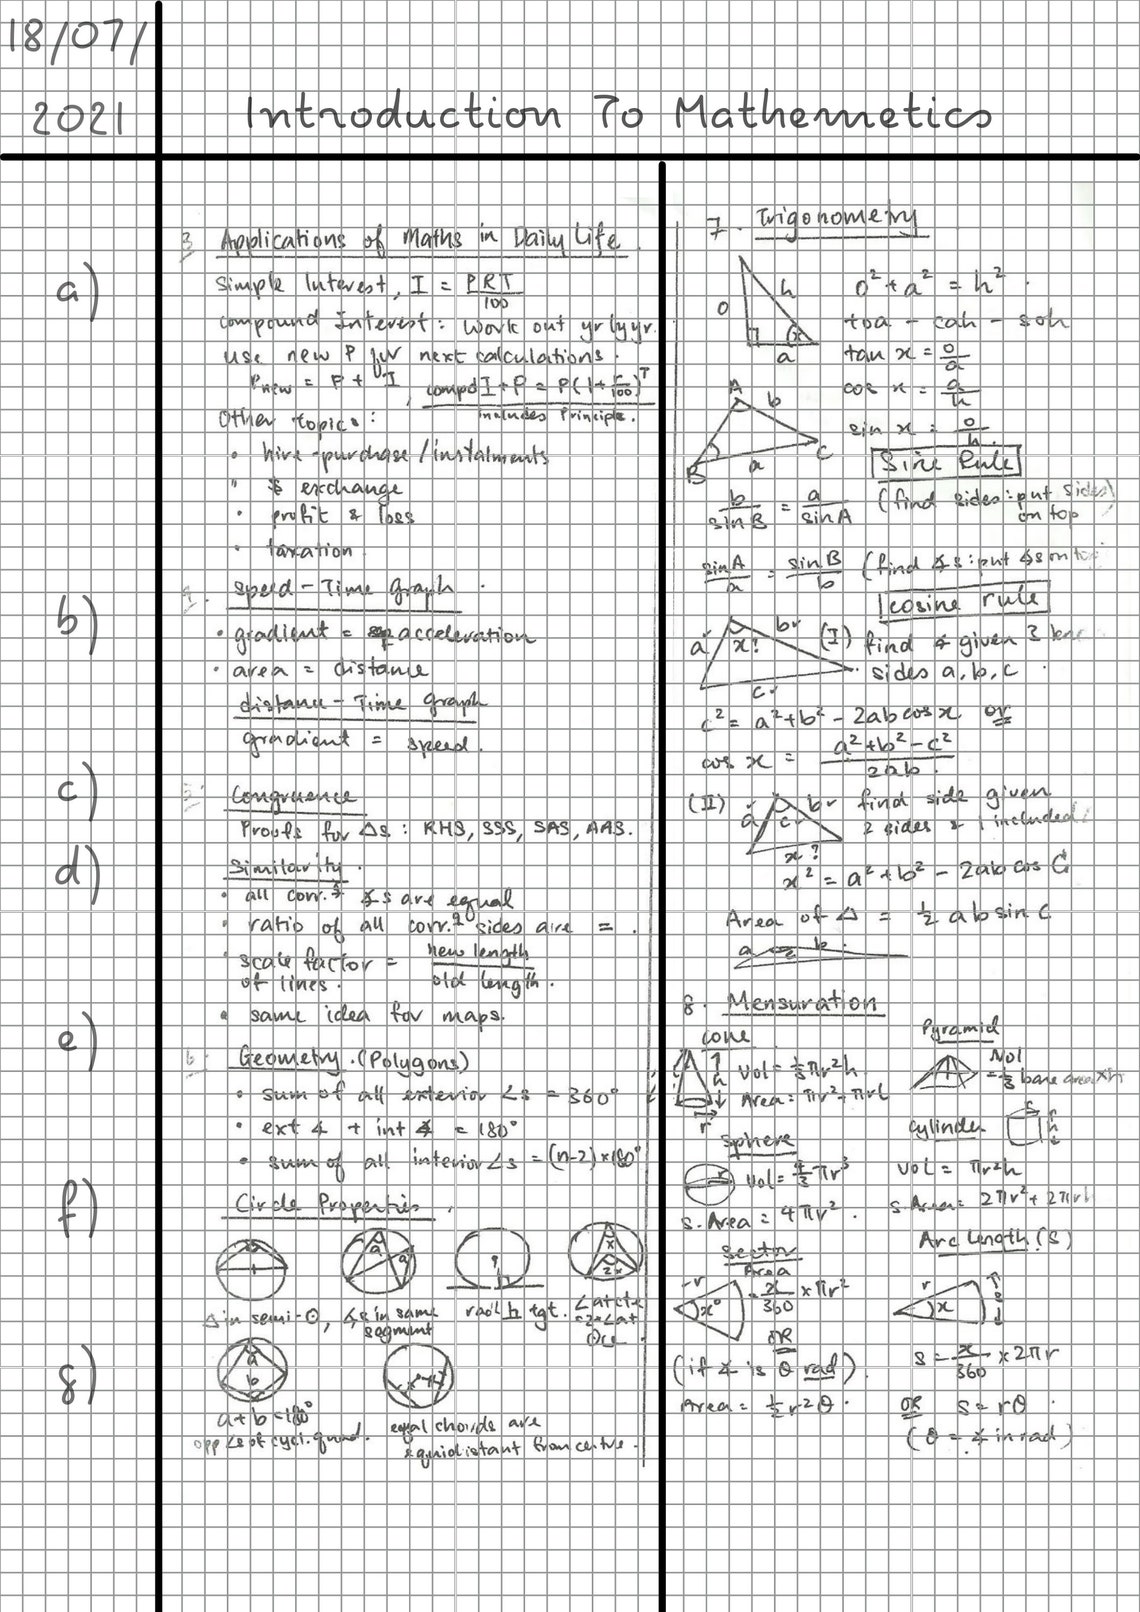 18/07/
2021
Introduction To Mathemetics
a)
b)
c)
d)
e)
f)
g)
3 Applications of Maths in Daily Life
Simple Interest, I = PRT/100
Compound Interest: Work out yr by yr.
Use new P for next calculations.
Pnew = P + I, compd I + P = P(1+r/100)^T
includes Principle.
Other topics:
• hire-purchase/instalments
" $ exchange
• profit & loss
• taxation
4. Speed-Time Graph
• gradient = acceleration
• area = distance
distance-Time Graph
gradient = speed.
5. Congruence
Proofs for Δs: RHS, SSS, SAS, AAS.
Similarity.
• all corr.g ∡s are equal
• ratio of all corr.g sides are = .
• scale factor = new length/old length.
of lines.
• same idea for maps.
6. Geometry.(Polygons)
• sum of all exterior ∠s = 360°
• ext ∡ + int ∡ = 180°
• sum of all interior ∠s = (n-2)×180°
Circle Properties
a a
x 2x
Δ in semi-⊙, ∡s in same segment
rad ⊥ tgt. ∠ at ctr = 2×∠ at ⊙ce
a
b
a + b = 180°
opp ∠s of cycl. quad.
equal chords are
equidistant from centre.
7. Trigonometry
o h a x
o² + a² = h²
toa - cah - soh
tan x = o/a
cos x = a/h
sin x = o/h
A b C a B
Sine Rule
b/sinB = a/sinA (find sides: put sides on top)
sinA/a = sinB/b (find ∡s: put ∡s on top
cosine rule
a b x? c
(I) find ∡ given 3
sides a, b, c
c² = a² + b² - 2ab cos x or
cos x = a² + b² - c²/2ab.
(II) a b c x?
find side given
2 sides & 1 included
x² = a² + b² - 2ab cos C
Area of Δ = ½ ab sin C
a b
8. Mensuration
Cone
h r
Vol = ⅓πr²h
Area = πr² + πrl
Pyramid
Vol
= ⅓ base area × h
Sphere
Vol = 4/3 πr³
S. Area = 4πr².
Cylinder
r h
Vol = πr²h
S. Area = 2πr² + 2πrh
Sector
Area
r x°
= x/360 × πr²
OR
(if ∡ is θ rad)
Area = ½ r²θ.
Arc Length (S)
r x s
s = x/360 × 2πr
OR s = rθ
(θ = ∡ in rad)